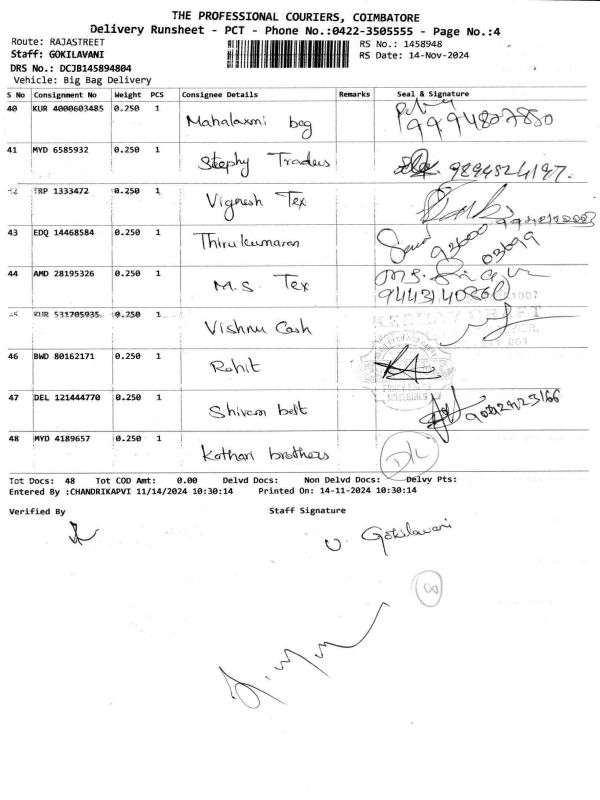 THE PROFESSIONAL COURIERS, COIMBATORE
Delivery Runsheet - PCT - Phone No.:0422-3505555 - Page No.:4
Route: RAJASTREET RS No.: 1458948
Staff: GOKILAVANI RS Date: 14-Nov-2024
DRS No.: DCJB145894804
Vehicle: Big Bag Delivery
S No Consignment No Weight PCS Consignee Details Remarks Seal & Signature
40 KUR 4000603485 0.250 1 Mahalaxmi bag 9994807880
41 MYD 6585932 0.250 1 Stephy Traders 9894524197.
TRP 1333472 0.250 1 Vignesh Tex
43 EDQ 14468584 0.250 1 Thirukumaran 93600 03699
44 AMD 28195326 0.250 1 M.S. Tex
KUR 531705935 0.250 1 Vishnu Cash
46 BWD 80162171 0.250 1 Rohit
47 DEL 121444770 0.250 1 Shivam belt
48 MYD 4189657 0.250 1 Kothari brothers D/L
Tot Docs: 48 Tot COD Amt: 0.00 Delvd Docs: Non Delvd Docs: Delvy Pts:
Entered By :CHANDRIKAPVI 11/14/2024 10:30:14 Printed On: 14-11-2024 10:30:14
Verified By Staff Signature
Gokilavani